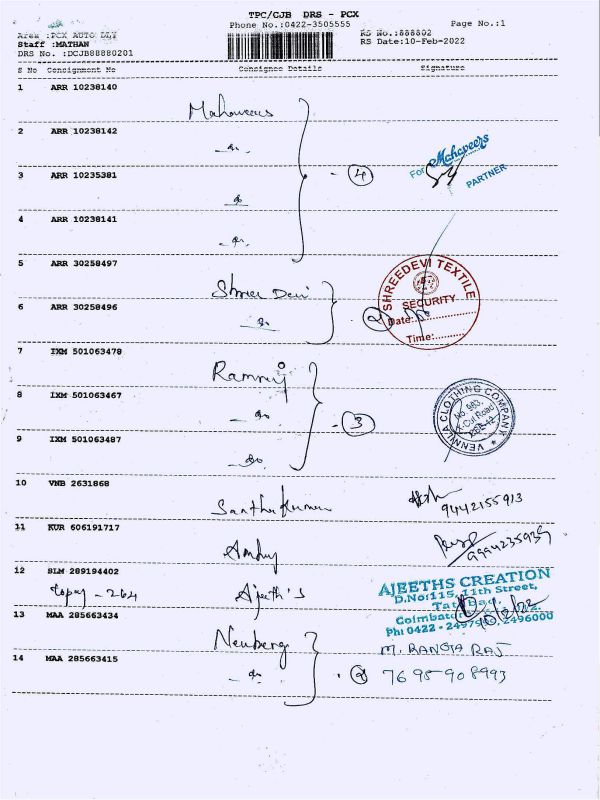 TPC/CJB DRS - PCX
Phone No.:0422-3505555
Page No.:1
Area :PCX AUTO DLY
RS No.:888802
Staff :MATHAN
RS Date:10-Feb-2022
DRS No. :DCJB88880201
S No Consignment No Consignee Details Signature
1 ARR 10238140
Mahaveers
2 ARR 10238142
- do -
For Mahaveers
3 ARR 10235381
- (4)
PARTNER
do
4 ARR 10238141
- do -
5 ARR 30258497
SHREEDEVI TEXTILE
Shree Devi
SECURITY
6 ARR 30258496
- do - (2)
Date:..........
Time:..........
7 IXM 501063478
Ramraj
8 IXM 501063467
VENNILA CLOTHING COMPANY
- do - - (3)
9 IXM 501063487
- do -
10 VNB 2631868
Santha Kumar
9442155913
11 KUR 606191717
12 SLM 289194402
AJEETHS CREATION
Topay - 264 Ajeeth's
D.No:115, 11th Street,
13 MAA 285663434
Neuberg
M. RANGA RAJ
14 MAA 285663415
- do - - (2)
7695908993